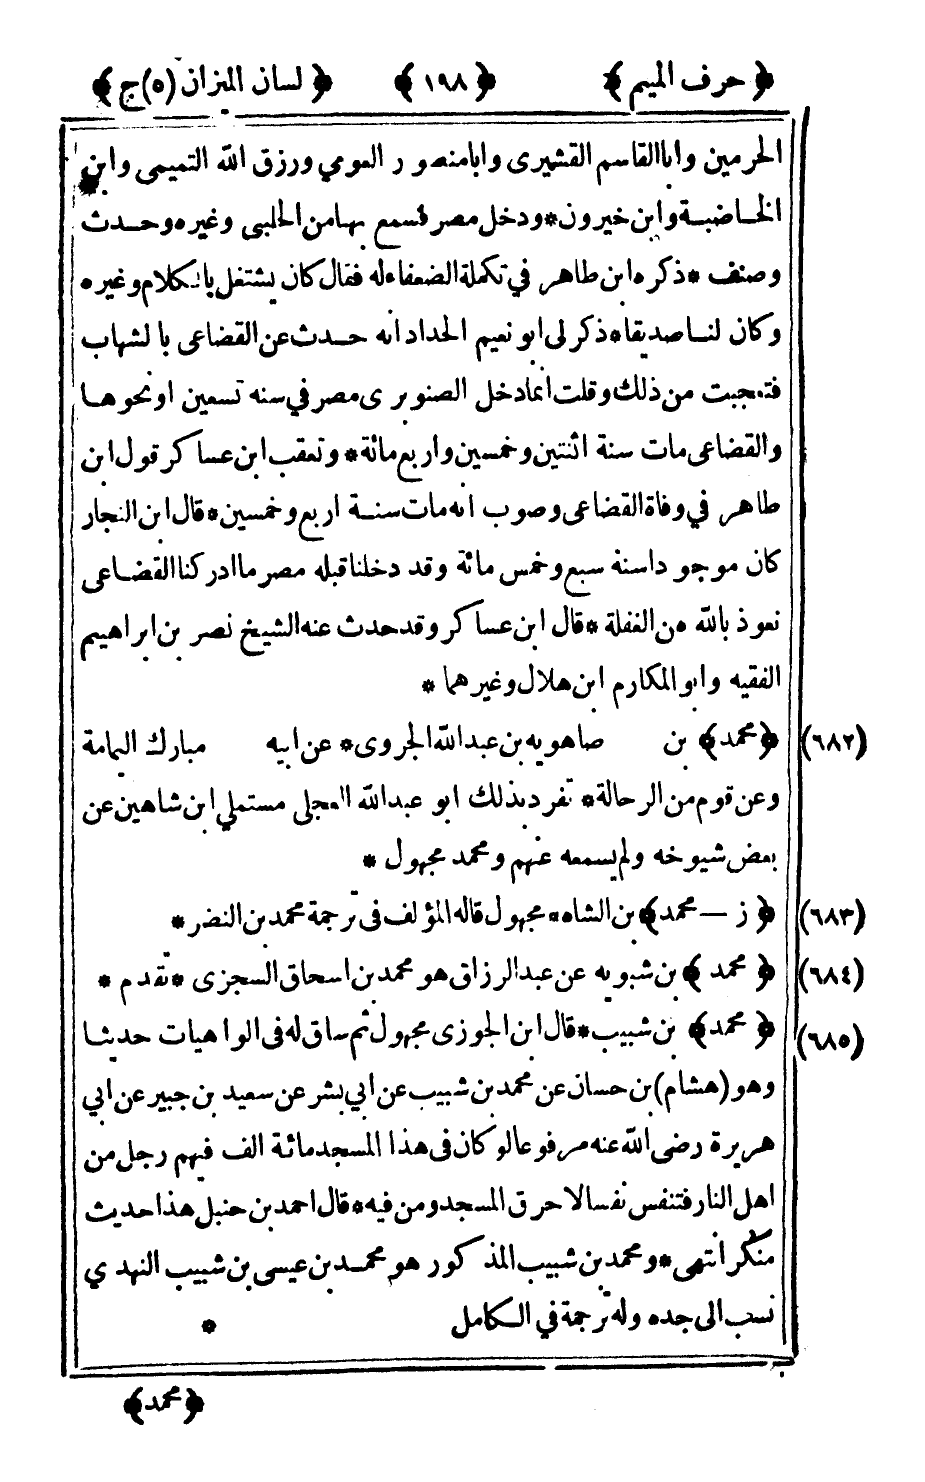 ﴿ حرف الميم ﴾ ﴿ ١٩٨ ﴾ ﴿ لسان الميزان (٥) ج ﴾
الحرمين وابا القاسم القشيرى وابا منصور العومي ورزق الله التميمى وابن
الخاضبة وابن خيرون * ودخل مصر فسمع بها من الخلبى وغيره وحدث
وصنف * ذكره ابن طاهر في تكملة الضعفاء له فقال كان يشتغل بالكلام وغيره
وكان لنا صديقا * ذكر لى ابو نعيم الحداد انه حدث عن القضاعى بالشهاب
فتعجبت من ذلك وقلت انما دخل الصنوبرى مصر في سنه تسعين او نحوها
والقضاعى مات سنة اثنتين وخمسين واربع مائة * وتعقب ابن عساكر قول ابن
طاهر في وفاة القضاعى وصوب انه مات سنة اربع وخمسين * قال ابن النجار
كان موجودا سنة سبع وخمس مائة وقد دخلنا قبله مصر ما ادركنا القضاعى
نعوذ بالله من الغفلة * قال ابن عساكر وقد حدث عنه الشيخ نصر بن ابراهيم
الفقيه وابو المكارم ابن هلال وغيرهما *
(٦٨٢) ﴿ محمد ﴾ بن صاهويه بن عبد الله الجروى * عن ابيه مبارك اليمامة
وعن قوم من الرحالة * تفرد بذلك ابو عبد الله العجلى مستملي ابن شاهين عن
بعض شيوخه ولم يسمعه عنهم ومحمد مجهول *
(٦٨٣) ﴿ ز — محمد ﴾ بن الشاه * مجهول قاله المؤلف فى ترجمة محمد بن النضر *
(٦٨٤) ﴿ محمد ﴾ بن شبويه عن عبد الرزاق هو محمد بن اسحاق السجزى * تقدم *
(٦٨٥) ﴿ محمد ﴾ بن شبيب * قال ابن الجوزى مجهول ثم ساق له فى الواهيات حديثا
وهو (هشام) بن حسان عن محمد بن شبيب عن ابي بشر عن سعيد بن جبير عن ابي
هريرة رضى الله عنه مرفوعا لو كان فى هذا المسجد مائة الف فيهم رجل من
اهل النار فتنفس نفسا لاحرق المسجد ومن فيه * قال احمد بن حنبل هذا حديث
منكر انتهى * ومحمد بن شبيب المذكور هو محمد بن عيسى بن شبيب النهدي
نسب الى جده وله ترجمة في الكامل *
﴿ محمد ﴾